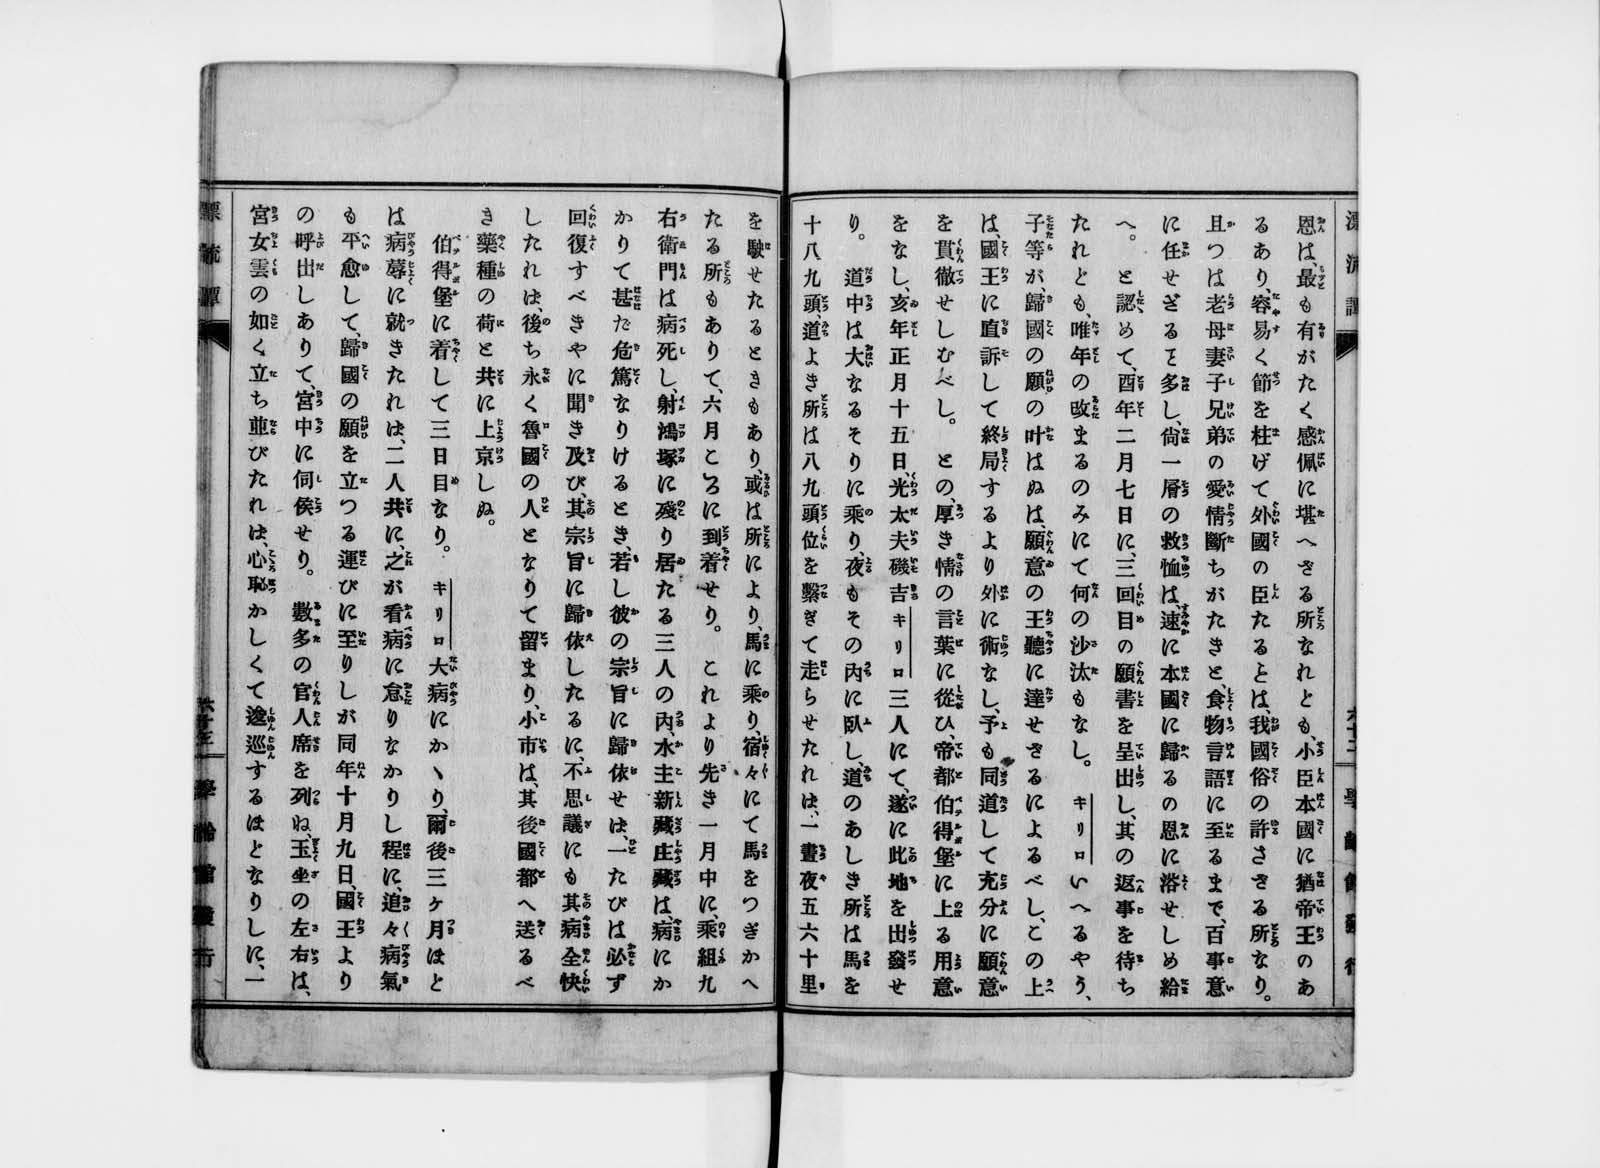 漂流譚
恩は、最も有がたく感佩に堪へざる所なれとも、小臣本國に猶帝王のあ
るあり、容易く節を枉げて外國の臣たるとは、我國俗の許さざる所なり。
且つは老母妻子兄弟の愛情斷ちがたきと、食物言語に至るまで、百事意
に任せざるて多し、尙一層の救恤は、速に本國に歸るの恩に浴せしめ給
へ。と認めて、酉年二月七日に、三回目の願書を呈出し、其の返事を待ち
たれとも、唯年の改まるのみにて何の沙汰もなし。キリロいへるやう、
子等が、歸國の願の叶はぬは、願意の王聽に達せざるによるべし、この上
は、國王に直訴して終局するより外に術なし、予も同道して充分に願意
を貫徹せしむべし。との、厚き情の言葉に從ひ、帝都伯得堡に上る用意
をなし、亥年正月十五日、光太夫磯吉キリロ三人にて、遂に此地を出發せ
り。道中は大なるそりに乘り、夜もその內に臥し、道のあしき所は馬を
十八九頭、道よき所は八九頭位を繫ぎて走らせたれは、一晝夜五六十里
を駛せたるときもあり、或は所により、馬に乘り、宿々にて馬をつぎかへ
たる所もありて、六月ころに到着せり。これより先き一月中に、乘組九
右衛門は病死し、射鴻塚に殘り居たる三人の內、水主新藏庄藏は、病にか
かりて甚だ危篤なりけるとき、若し彼の宗旨に歸依せは、一たびは必ず
回復すべきやに聞き及び、其宗旨に歸依したるに、不思議にも其病全快
したれは、後ち永く魯國の人となりて留まり、小市は、其後國都へ送るべ
き藥種の荷と共に上京しぬ。
伯得堡に着して三日目なり。キリロ大病にかゝり、爾後三ケ月ほと
は病蓐に就きたれは、二人共に、之が看病に怠りなかりし程に、追々病氣
も平愈して、歸國の願を立つる運びに至りしが同年十月九日、國王より
の呼出しありて、宮中に伺侯せり。數多の官人席を列ね、玉坐の左右は、
宮女雲の如く立ち並びたれは、心恥かしくて逡巡するほとなりしに、一
漂流譚
六十三
學齡館發行